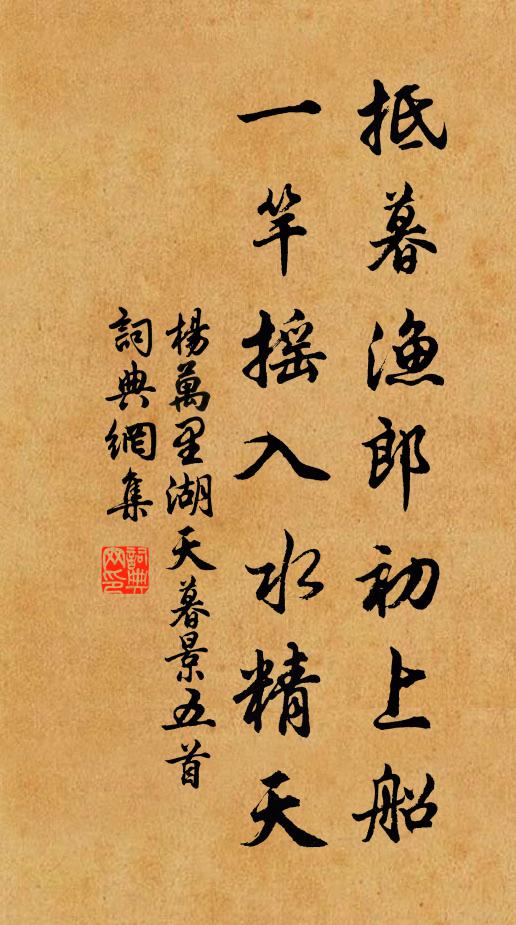 抵暮漁郎初上船
一竿摇入水精天
楊萬里湖天暮景五首
詞典網集
詞典網印